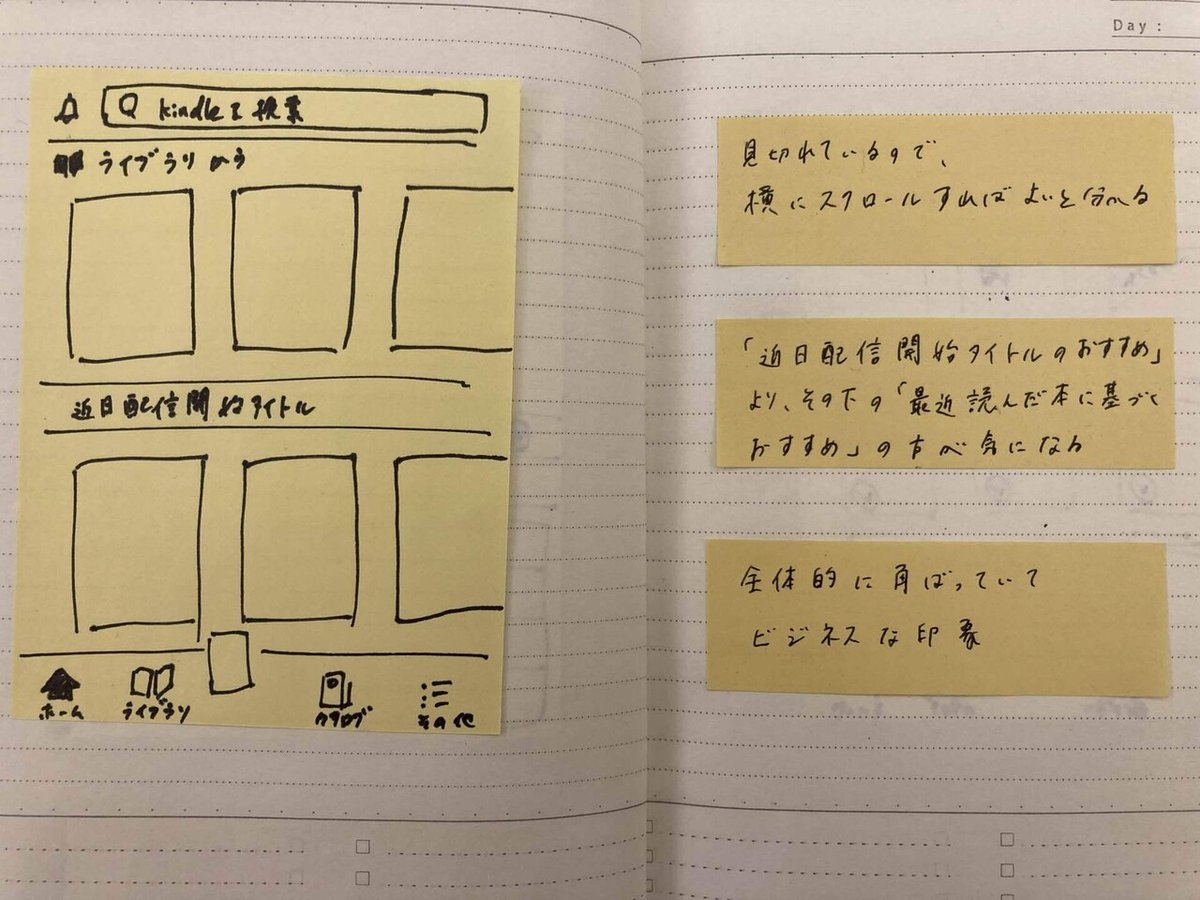 Day :
kindleを検索
ライブラリから
近日配信開始タイトル
ホーム
ライブラリ
カタログ
その他
見切れているので、
横にスクロールすればよいと分かる
「近日配信開始タイトルのおすすめ」
より、その下の「最近読んだ本に基づく
おすすめ」の方が気になる
全体的に角ばっていて
ビジネスな印象